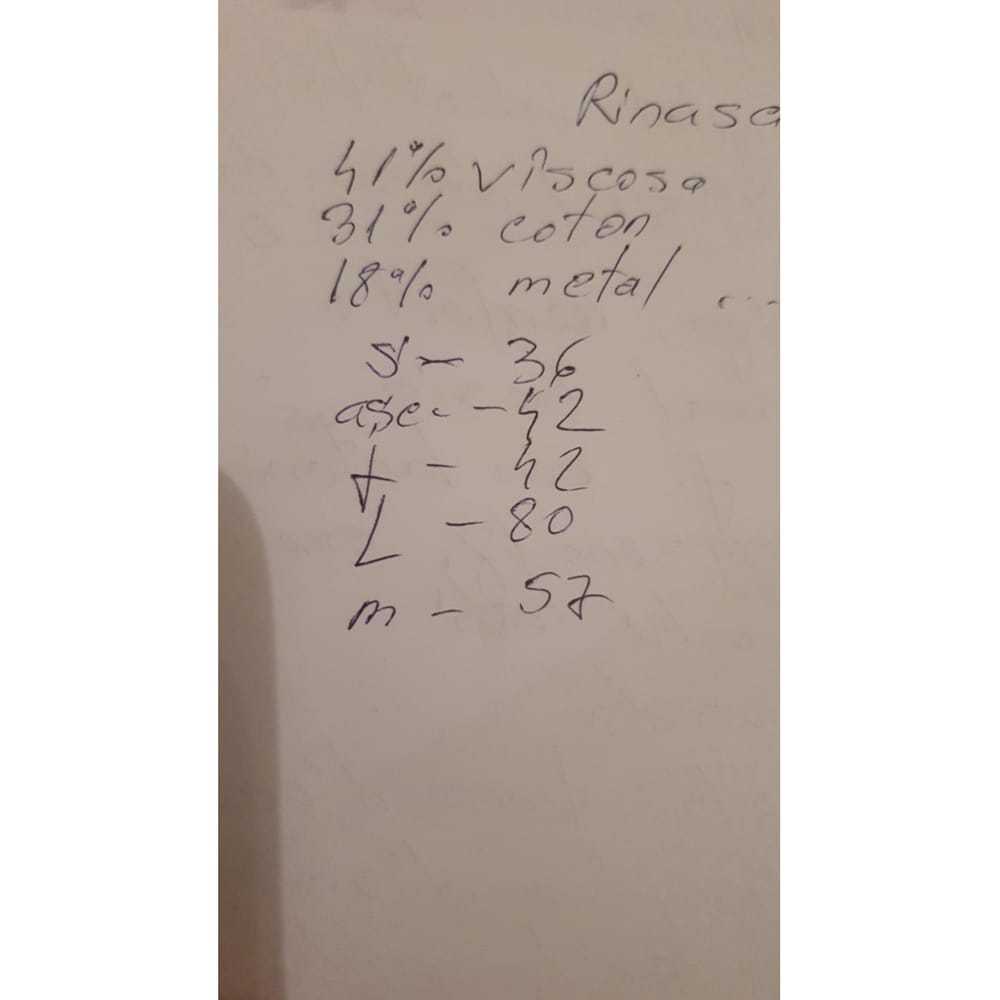 Rinasa
41% viscosa
31% coton
18% metal ...
S - 36
ase. - 42
t - 42
L - 80
m - 57